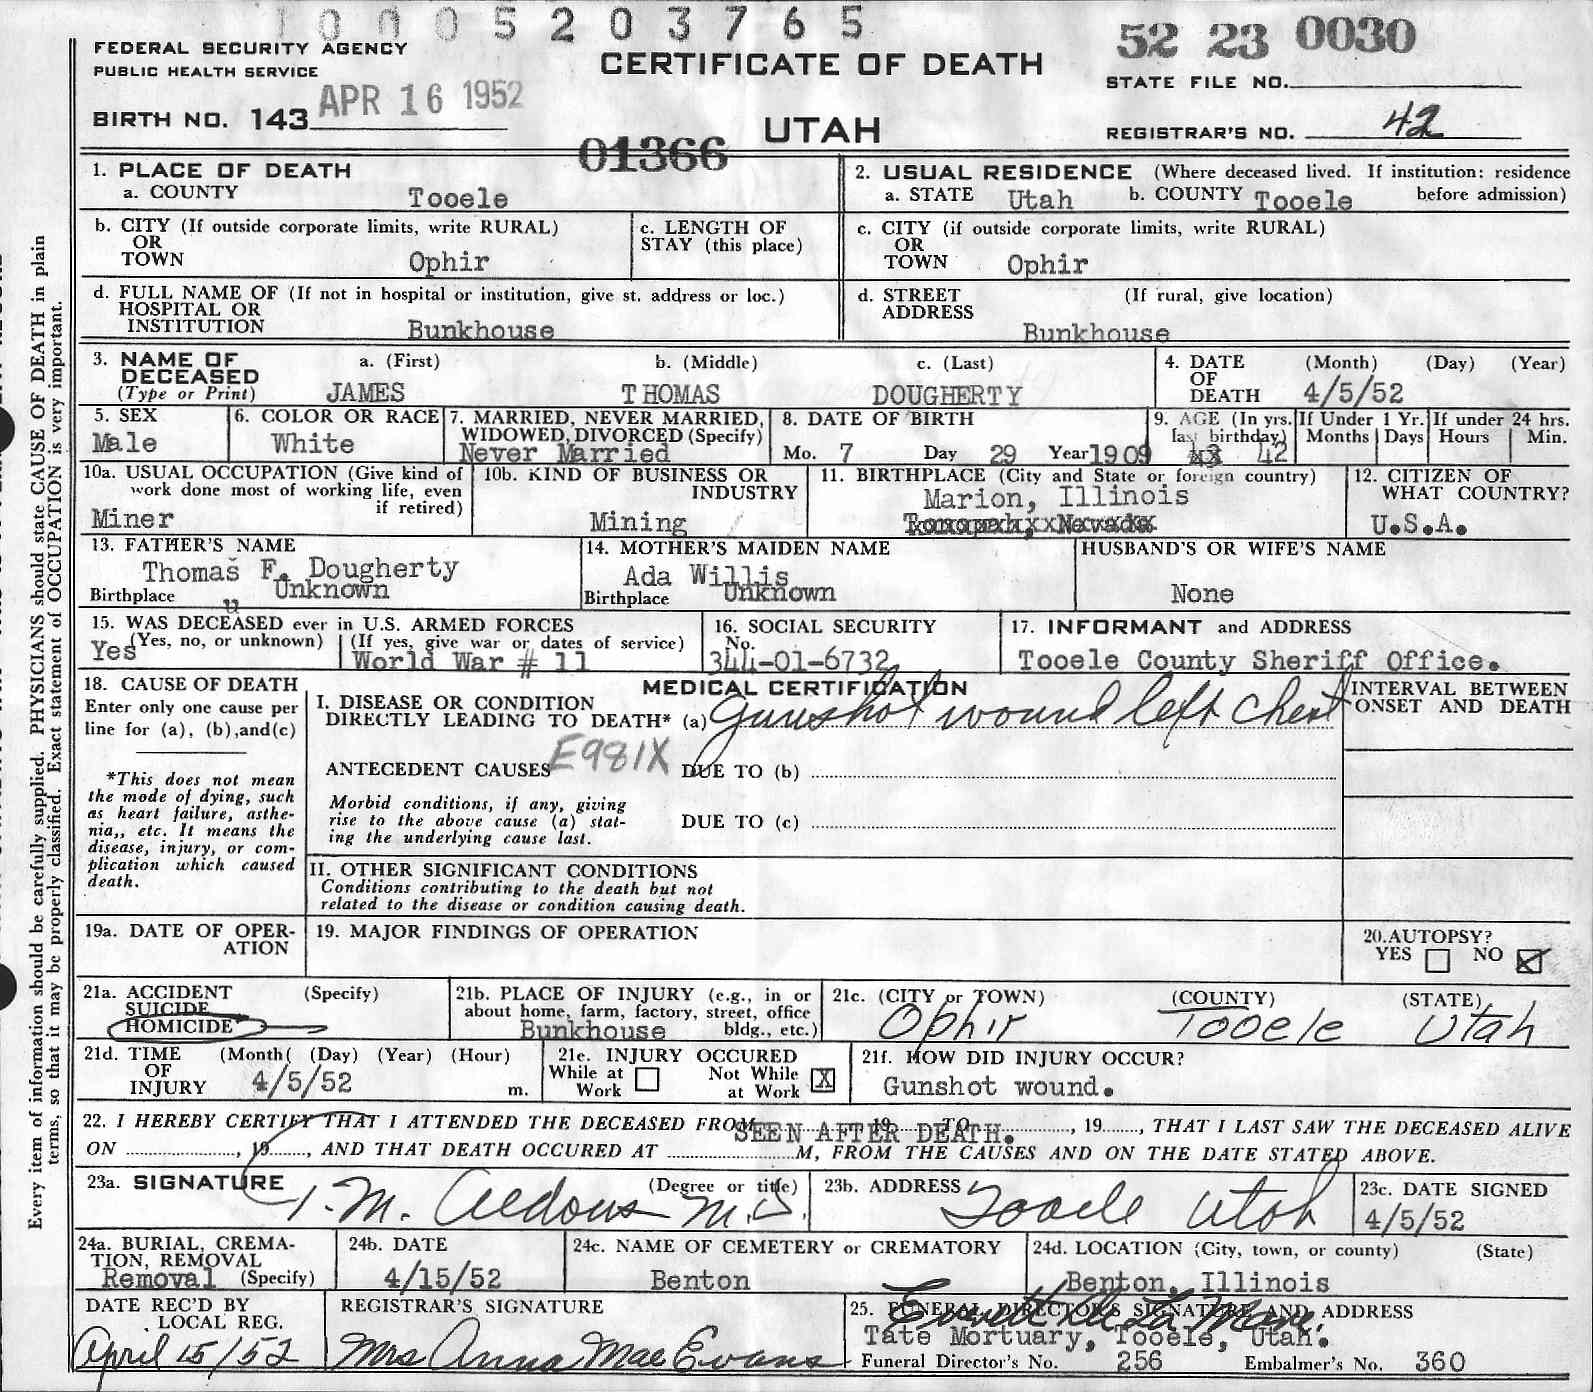 1 0 0 0 5 2 0 3 7 6 5
52 23 0030
FEDERAL SECURITY AGENCY
PUBLIC HEALTH SERVICE
CERTIFICATE OF DEATH
STATE FILE NO.
BIRTH NO. 143 APR 16 1952
UTAH
REGISTRAR'S NO. 42
01366
1. PLACE OF DEATH
a. COUNTY Tooele
2. USUAL RESIDENCE (Where deceased lived. If institution: residence before admission)
a. STATE Utah b. COUNTY Tooele
b. CITY (If outside corporate limits, write RURAL)
OR
TOWN Ophir
c. LENGTH OF
STAY (this place)
c. CITY (if outside corporate limits, write RURAL)
OR
TOWN Ophir
d. FULL NAME OF (If not in hospital or institution, give st. address or loc.)
HOSPITAL OR
INSTITUTION Bunkhouse
d. STREET (If rural, give location)
ADDRESS Bunkhouse
3. NAME OF
DECEASED
(Type or Print)
a. (First) b. (Middle) c. (Last)
JAMES THOMAS DOUGHERTY
4. DATE (Month) (Day) (Year)
OF
DEATH 4/5/52
5. SEX
Male
6. COLOR OR RACE
White
7. MARRIED, NEVER MARRIED,
WIDOWED, DIVORCED (Specify)
Never Married
8. DATE OF BIRTH
Mo. 7 Day 29 Year 1909
9. AGE (In yrs.
last birthday)
43 42
If Under 1 Yr.
Months Days
If under 24 hrs.
Hours Min.
10a. USUAL OCCUPATION (Give kind of
work done most of working life, even
if retired)
Miner
10b. KIND OF BUSINESS OR
INDUSTRY
Mining
11. BIRTHPLACE (City and State or foreign country)
Marion, Illinois
Tonopah, Nevada
12. CITIZEN OF
WHAT COUNTRY?
U.S.A.
13. FATHER'S NAME
Thomas F. Dougherty
Birthplace Unknown
u
14. MOTHER'S MAIDEN NAME
Ada Willis
Birthplace Unknown
HUSBAND'S OR WIFE'S NAME
None
15. WAS DECEASED ever in U.S. ARMED FORCES
Yes (Yes, no, or unknown) (If yes, give war or dates of service)
World War # 11
16. SOCIAL SECURITY
No.
344-01-6732
17. INFORMANT and ADDRESS
Tooele County Sheriff Office.
18. CAUSE OF DEATH
Enter only one cause per
line for (a), (b),and(c)
*This does not mean
the mode of dying, such
as heart failure, asthe-
nia,, etc. It means the
disease, injury, or com-
plication which caused
death.
MEDICAL CERTIFICATION
INTERVAL BETWEEN
ONSET AND DEATH
I. DISEASE OR CONDITION
DIRECTLY LEADING TO DEATH* (a) Gunshot wound left chest
ANTECEDENT CAUSES E981X DUE TO (b)
Morbid conditions, if any, giving
rise to the above cause (a) stat-
ing the underlying cause last.
DUE TO (c)
II. OTHER SIGNIFICANT CONDITIONS
Conditions contributing to the death but not
related to the disease or condition causing death.
19a. DATE OF OPER-
ATION
19. MAJOR FINDINGS OF OPERATION
20.AUTOPSY?
YES NO X
21a. ACCIDENT (Specify)
SUICIDE
HOMICIDE
21b. PLACE OF INJURY (e.g., in or
about home, farm, factory, street, office
bldg., etc.)
Bunkhouse
21c. (CITY or TOWN) (COUNTY) (STATE)
Ophir Tooele Utah
21d. TIME (Month( (Day) (Year) (Hour)
OF
INJURY 4/5/52 m.
21e. INJURY OCCURED
While at Work Not While at Work X
21f. HOW DID INJURY OCCUR?
Gunshot wound.
22. I HEREBY CERTIFY THAT I ATTENDED THE DECEASED FROM 19 TO , 19 , THAT I LAST SAW THE DECEASED ALIVE
SEEN AFTER DEATH.
ON , 19 , AND THAT DEATH OCCURED AT M, FROM THE CAUSES AND ON THE DATE STATED ABOVE.
23a. SIGNATURE (Degree or title)
Aldous M.D.
23b. ADDRESS Tooele Utah
23c. DATE SIGNED
4/5/52
24a. BURIAL, CREMA-
TION, REMOVAL
Removal (Specify)
24b. DATE
4/15/52
24c. NAME OF CEMETERY or CREMATORY
Benton
24d. LOCATION (City, town, or county) (State)
Benton, Illinois
DATE REC'D BY
LOCAL REG.
April 15/52
REGISTRAR'S SIGNATURE
Mrs Anna Mae Evans
25. FUNERAL DIRECTOR'S SIGNATURE AND ADDRESS
Everett De La Mare
Tate Mortuary, Tooele, Utah.
Funeral Director's No. 256 Embalmer's No. 360
Every item of information should be carefully supplied. PHYSICIANS should state CAUSE OF DEATH in plain
terms, so that it may be properly classified. Exact statement of OCCUPATION is very important.